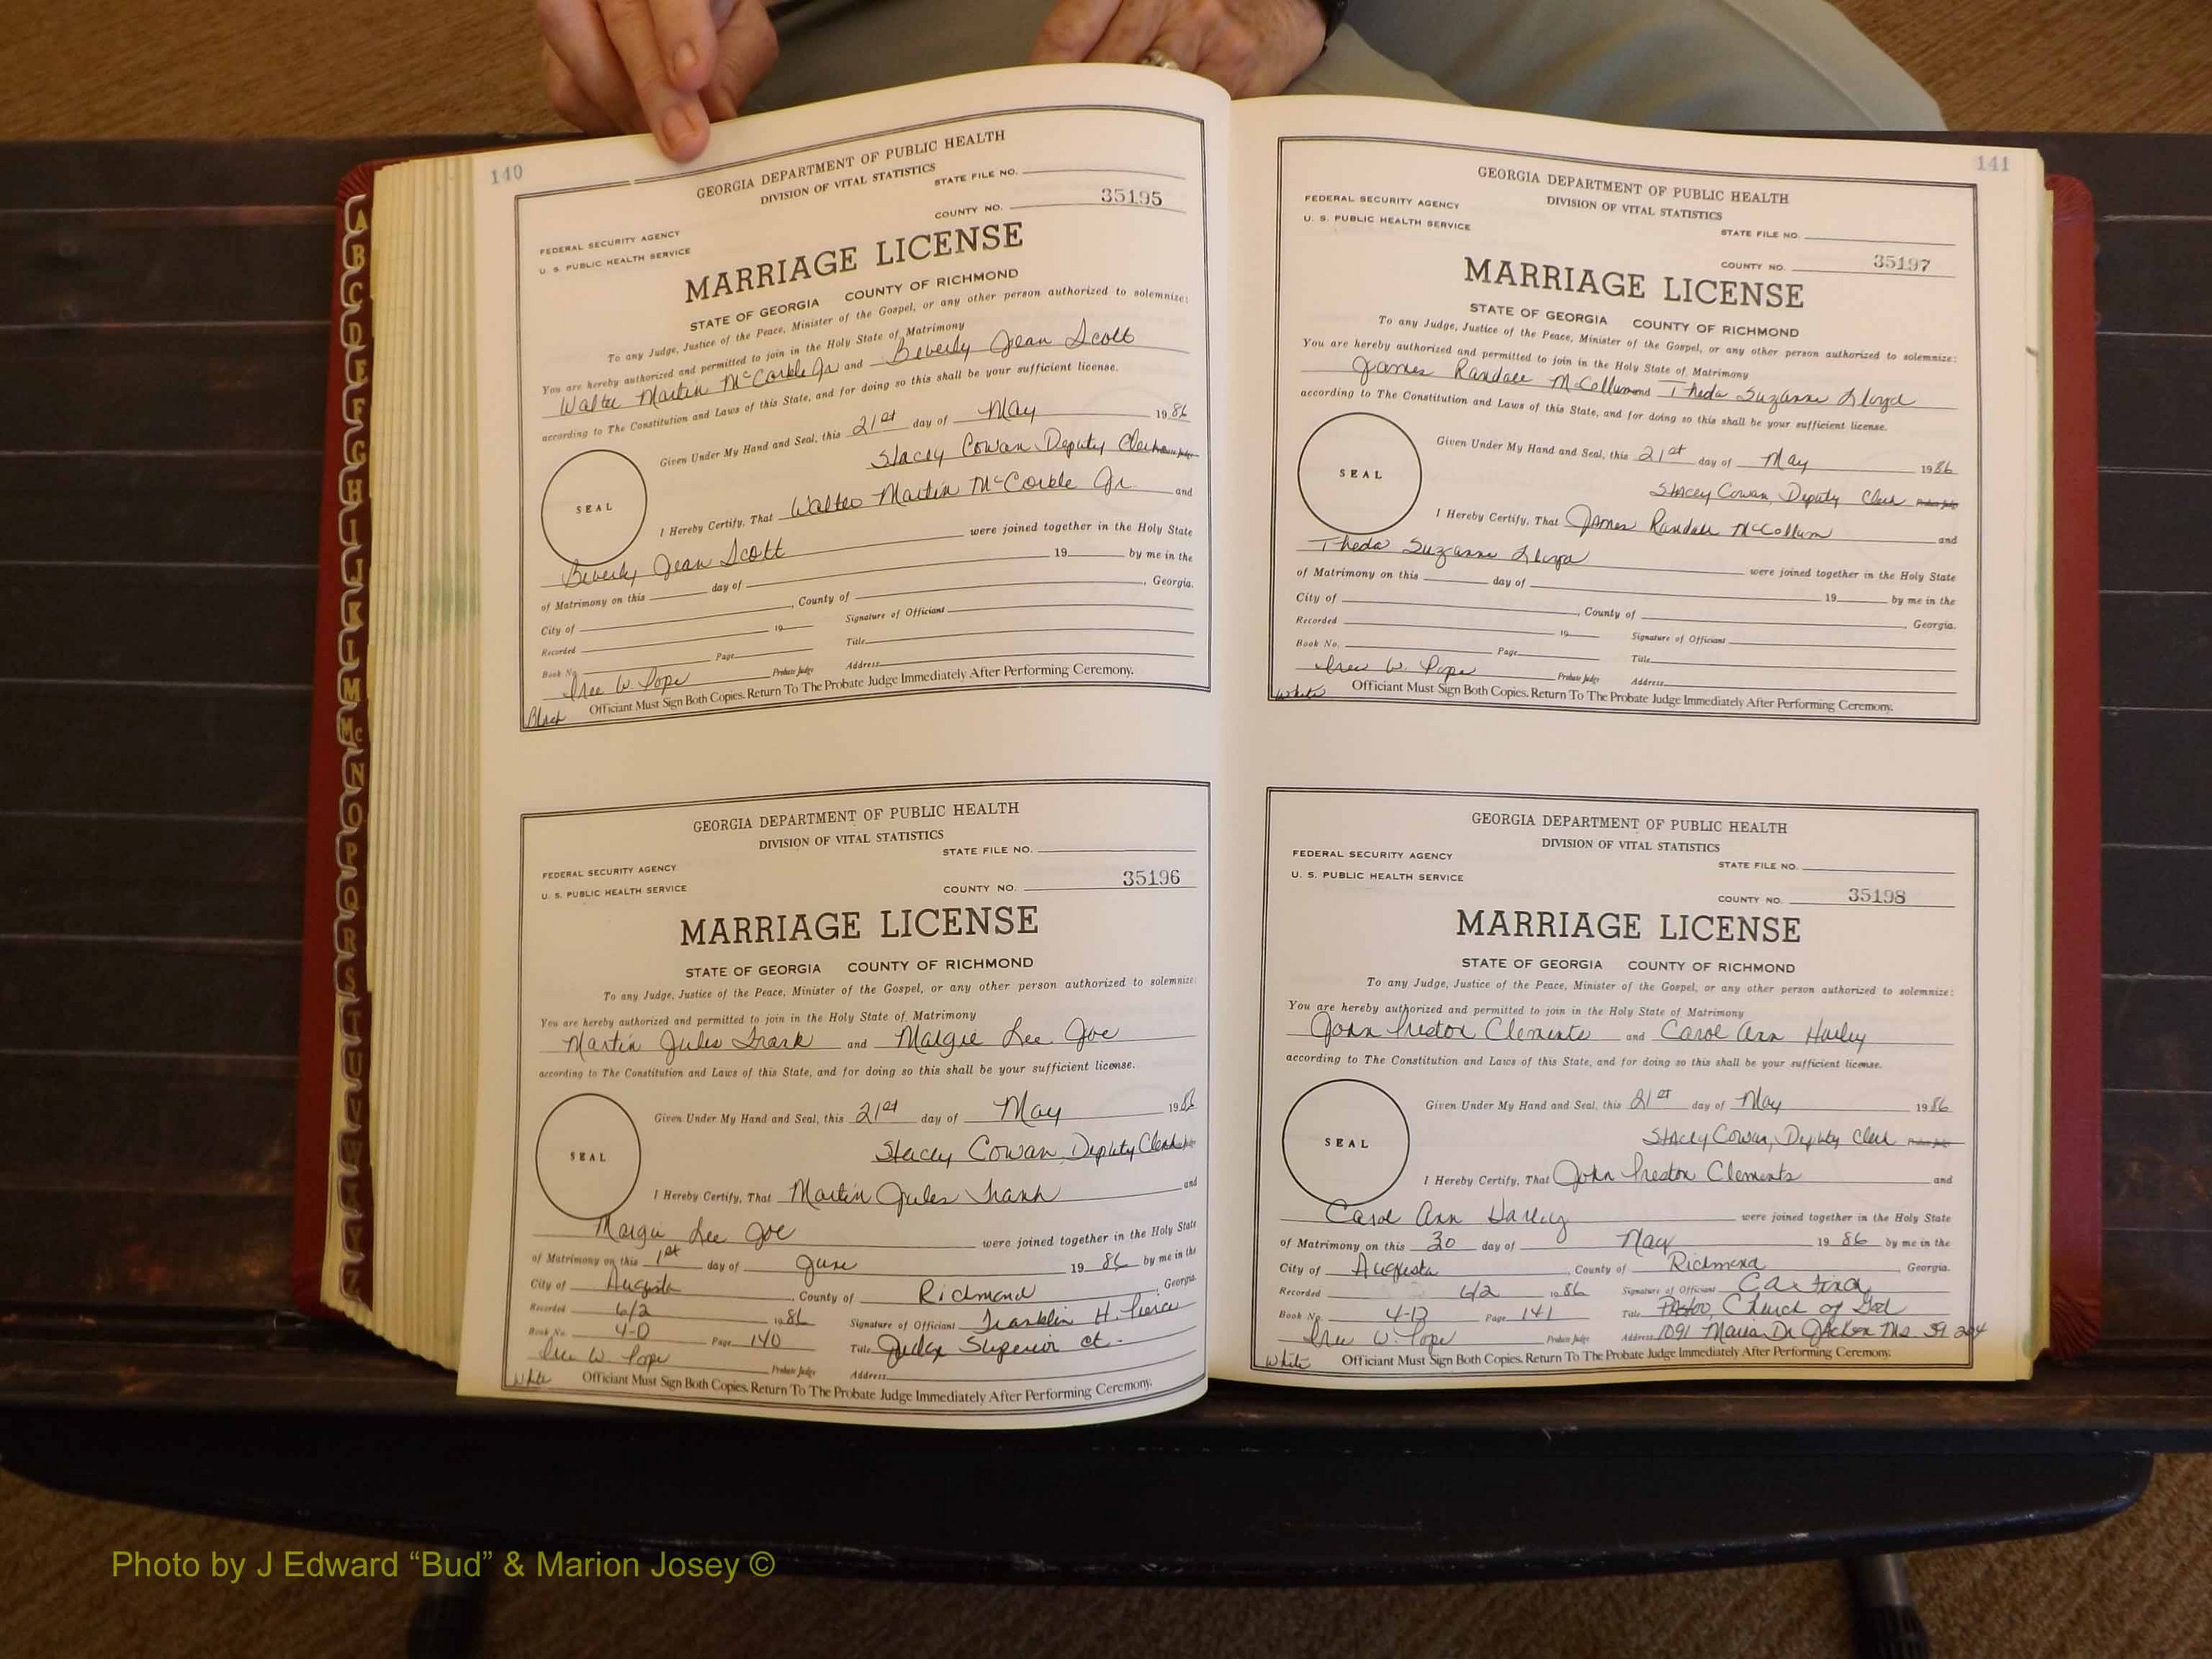 140
GEORGIA DEPARTMENT OF PUBLIC HEALTH
DIVISION OF VITAL STATISTICS
STATE FILE NO.
FEDERAL SECURITY AGENCY
U. S. PUBLIC HEALTH SERVICE
COUNTY NO. 35195
MARRIAGE LICENSE
STATE OF GEORGIA COUNTY OF RICHMOND
To any Judge, Justice of the Peace, Minister of the Gospel, or any other person authorized to solemnize:
You are hereby authorized and permitted to join in the Holy State of Matrimony
Walter Martin McCorkle Jr and Beverly Jean Scott
according to The Constitution and Laws of this State, and for doing so this shall be your sufficient license.
Given Under My Hand and Seal, this 21st day of May 1986
Stacey Cowan Deputy Clerk Probate Judge
SEAL
I Hereby Certify, That Walter Martin McCorkle Jr. and
Beverly Jean Scott were joined together in the Holy State
of Matrimony on this day of 19 by me in the
City of , County of , Georgia.
Recorded 19 Signature of Officiant
Book No. Page Title
W. Pope Probate Judge Address
Black Officiant Must Sign Both Copies. Return To The Probate Judge Immediately After Performing Ceremony.
GEORGIA DEPARTMENT OF PUBLIC HEALTH
DIVISION OF VITAL STATISTICS
STATE FILE NO.
FEDERAL SECURITY AGENCY
U. S. PUBLIC HEALTH SERVICE
COUNTY NO. 35196
MARRIAGE LICENSE
STATE OF GEORGIA COUNTY OF RICHMOND
To any Judge, Justice of the Peace, Minister of the Gospel, or any other person authorized to solemnize:
You are hereby authorized and permitted to join in the Holy State of Matrimony
Martin Jules and Margie Lee Joe
according to The Constitution and Laws of this State, and for doing so this shall be your sufficient license.
Given Under My Hand and Seal, this 21st day of May 1986
Stacey Cowan Deputy Clerk
SEAL
I Hereby Certify, That Martin Jules and
Margie Lee Joe were joined together in the Holy State
of Matrimony on this 1st day of June 19 86 by me in the
City of Augusta , County of Richmond , Georgia.
Recorded 6/2 1986 Signature of Officiant Franklin H. Pierce
Book No. 4-D Page 140 Title Judge Superior ct.
W. Pope Probate Judge Address
White Officiant Must Sign Both Copies. Return To The Probate Judge Immediately After Performing Ceremony.
141
GEORGIA DEPARTMENT OF PUBLIC HEALTH
DIVISION OF VITAL STATISTICS
FEDERAL SECURITY AGENCY
U. S. PUBLIC HEALTH SERVICE
STATE FILE NO.
COUNTY NO. 35197
MARRIAGE LICENSE
STATE OF GEORGIA COUNTY OF RICHMOND
To any Judge, Justice of the Peace, Minister of the Gospel, or any other person authorized to solemnize:
You are hereby authorized and permitted to join in the Holy State of Matrimony
James Randall McCollum and Theda Suzanne Lloyd
according to The Constitution and Laws of this State, and for doing so this shall be your sufficient license.
Given Under My Hand and Seal, this 21st day of May 1986
Stacey Cowan, Deputy Clerk Probate Judge
SEAL
I Hereby Certify, That James Randall McCollum and
Theda Suzanne Lloyd were joined together in the Holy State
of Matrimony on this day of 19 by me in the
City of , County of , Georgia.
Recorded 19 Signature of Officiant
Book No. Page Title
W. Pope Probate Judge Address
White Officiant Must Sign Both Copies. Return To The Probate Judge Immediately After Performing Ceremony.
GEORGIA DEPARTMENT OF PUBLIC HEALTH
DIVISION OF VITAL STATISTICS
FEDERAL SECURITY AGENCY
U. S. PUBLIC HEALTH SERVICE
STATE FILE NO.
COUNTY NO. 35198
MARRIAGE LICENSE
STATE OF GEORGIA COUNTY OF RICHMOND
To any Judge, Justice of the Peace, Minister of the Gospel, or any other person authorized to solemnize:
You are hereby authorized and permitted to join in the Holy State of Matrimony
John Preston Clements and Carol Ann Harley
according to The Constitution and Laws of this State, and for doing so this shall be your sufficient license.
Given Under My Hand and Seal, this 21st day of May 1986
Stacey Cowan, Deputy Clerk Probate Judge
SEAL
I Hereby Certify, That John Preston Clements and
Carol Ann Harley were joined together in the Holy State
of Matrimony on this 30 day of May 19 86 by me in the
City of Augusta , County of Richmond , Georgia.
Recorded 6/2 1986 Signature of Officiant
Book No. 4-D Page 141 Title Pastor, Church of God
W. Pope Probate Judge Address 1091 Maria Dr Ms.
White Officiant Must Sign Both Copies. Return To The Probate Judge Immediately After Performing Ceremony.
A
B
C
D
E
F
G
H
I
J
K
L
M
Mc
N
O
P
Q
R
S
T
U
V
W
X
Y
Z
Photo by J Edward “Bud” & Marion Josey ©